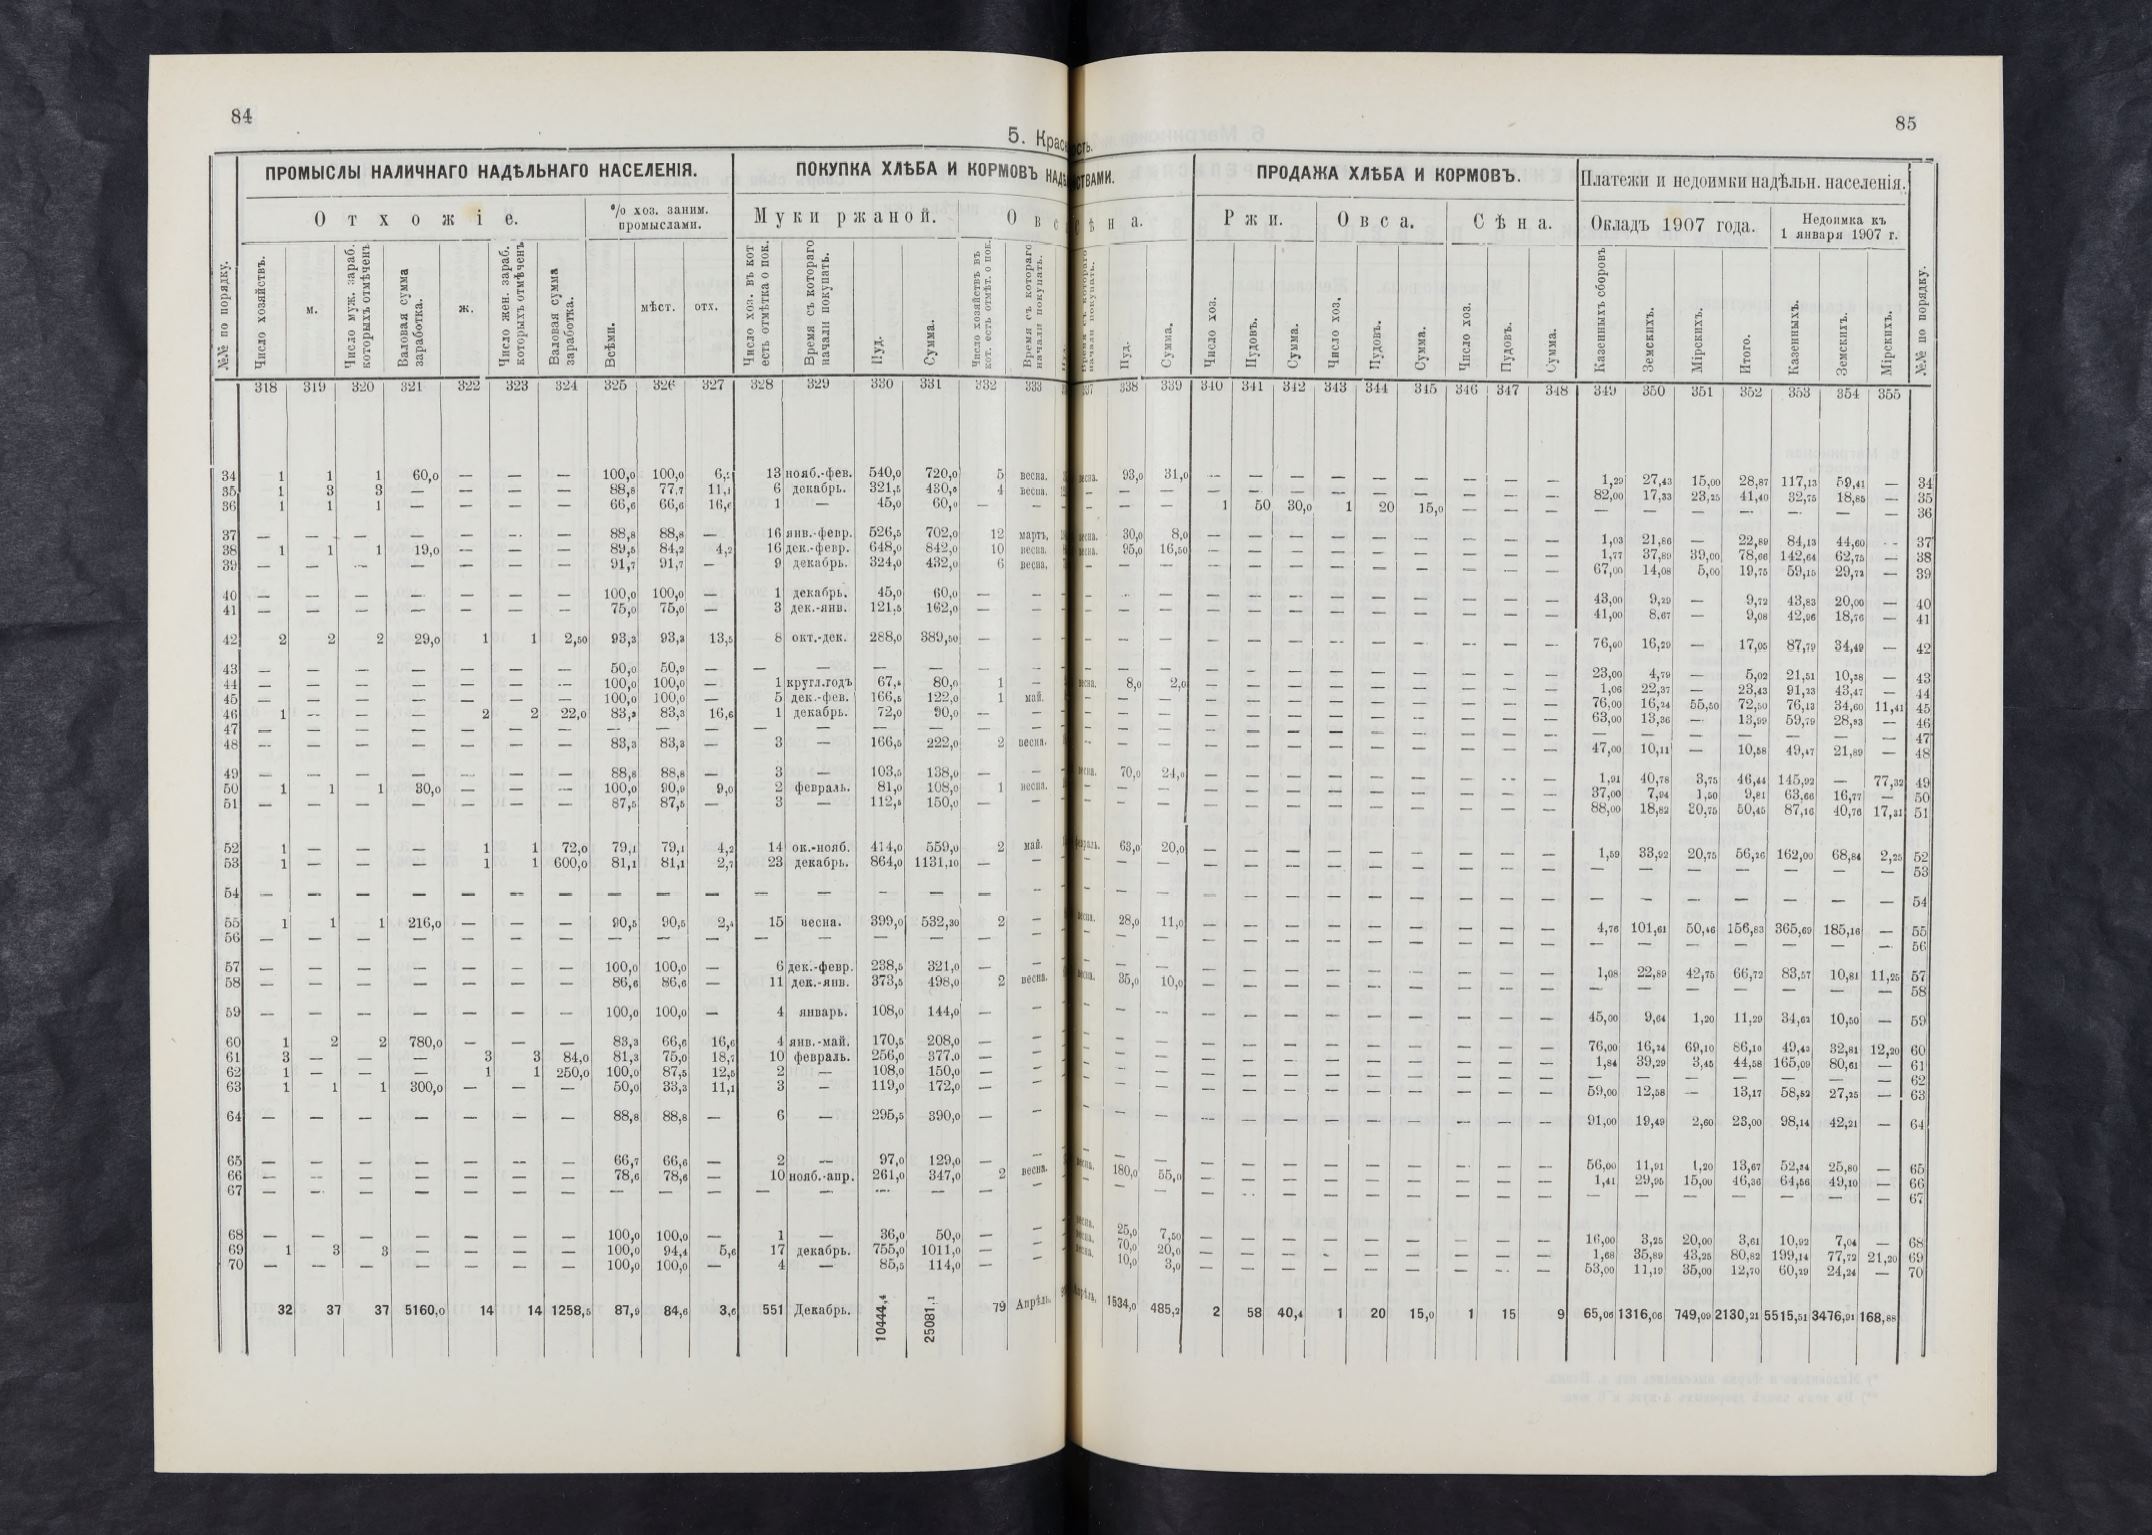 84
5. Крас
ость.
85
ПРОМЫСЛЫ НАЛИЧНАГО НАДѢЛЬНАГО НАСЕЛЕНІЯ.
ПОКУПКА ХЛѢБА И КОРМОВЪ НАДѢ
СТВАМИ.
ПРОДАЖА ХЛѢБА И КОРМОВЪ.
Платежи и недоимки надѣльн. населенія.
Отхожіе.
% хоз. заним. промыслами.
Муки ржаной.
Овс
ѣна.
Ржи.
Овса.
Сѣна.
Окладъ 1907 года.
Недоимка къ 1 января 1907 г.
№№ по порядку.
Число хозяйствъ.
м.
Число муж. зараб. которыхъ отмѣченъ
Валовая сумма заработка.
ж.
Число жен. зараб. которыхъ отмѣченъ
Валовая сумма заработка.
Всѣми.
мѣст.
отх.
Число хоз. въ кот есть отмѣтка о пок.
Время съ котораго начали покупать.
Пуд.
Сумма.
Число хозяйствъ въ кот. есть отмѣт. о пок.
Время съ котораго начали покупать.
Время съ котораго начали покупать.
Пуд.
Сумма.
Число хоз.
Пудовъ.
Сумма.
Число хоз.
Пудовъ.
Сумма.
Число хоз.
Пудовъ.
Сумма.
Казенныхъ сборовъ
Земскихъ.
Мірскихъ.
Итого.
Казенныхъ.
Земскихъ.
Мірскихъ.
№№ по порядку.
318 319 320 321 322 323 324 325 326 327 328 329 330 331 332 333 337 338 339 340 341 342 343 344 345 346 347 348 349 350 351 352 353 354 355
34 1 1 1 60,0 — — — 100,0 100,0 13 нояб.-фев. 540,0 720,0 5 весна. весна. 93,0 31,0 — — — — — — — — — 1,29 27,43 15,00 28,87 117,13 59,41 — 34
35 1 3 3 — — — — 88,8 77,7 11,1 6 декабрь. 321,5 430,8 4 весна. — — — — — — — — — — — — 82,00 17,33 23,25 41,40 32,75 18,85 — 35
36 1 1 1 — — — — 66,6 66,6 16,6 1 — 45,0 60,0 — — — — — 1 50 30,0 1 20 15,0 — — — — — — — — — — 36
37 88,8 88,8 — 16 янв.-февр. 526,5 702,0 12 мартъ, весна. 30,0 8,0 — — — — — — — — — 1,03 21,86 — 22,89 84,13 44,60 - - 37
38 1 1 1 19,0 — — — 89,5 84,2 4,2 16 дек.-февр. 648,0 842,0 10 весна. весна. 95,0 16,50 — — — — — — — — — 1,77 37,89 39,00 78,66 142,64 62,75 — 38
39 — — — — — — — 91,7 91,7 — 9 декабрь. 324,0 432,0 6 весна. — — — — — — — — — — — — 67,00 14,08 5,00 19,75 59,15 29,72 — 39
40 — — — — — — — 100,0 100,0 — 1 декабрь. 45,0 60,0 — — — — — — — — — — — — — — 43,00 9,29 — 9,72 43,83 20,00 — 40
41 — — — — — — — 75,0 75,0 — 3 дек.-янв. 121,5 162,0 — — — — — — — — — — — — — — 41,00 8,67 — 9,08 42,96 18,76 — 41
42 2 2 2 29,0 1 1 2,50 93,3 93,3 13,5 8 окт.-дек. 288,0 389,50 — — — — — — — — — — — — — — 76,00 16,29 — 17,05 87,79 34,49 — 42
43 — — — — — — — 50,0 50,9 — — — — — — — — — — — — — — — — — — — 23,00 4,79 — 5,02 21,51 10,38 — 43
44 — — — — — — — 100,0 100,0 — 1 кругл.годъ 67,5 80,0 1 — весна. 8,0 2,0 — — — — — — — — — 1,06 22,37 — 23,43 91,23 43,47 — 44
45 — — — — — — — 100,0 100,0 — 5 дек.-фев. 166,5 122,0 1 май. — — — — — — — — — — — — 76,00 16,24 55,50 72,50 76,13 34,60 11,41 45
46 1 — — — 2 2 22,0 83,3 83,3 16,6 1 декабрь. 72,0 90,0 — — — — — — — — — — — — — — 63,00 13,36 — 13,99 59,79 28,93 — 46
47 — — — — — — — — — — — — — — — — — — — — — — — — — — — — — — — — — — — 47
48 — — — — — — — 83,3 83,3 — 3 — 166,5 222,0 2 весна. — — — — — — — — — — — — 47,00 10,11 — 10,58 49,47 21,89 — 48
49 — — — — — — — 88,8 88,8 — 3 — 103,5 138,0 — — весна. 70,0 24,0 — — — — — — — — — 1,91 40,78 3,75 46,44 145,92 — 77,32 49
50 1 1 1 30,0 — — — 100,0 90,9 9,0 2 февраль. 81,0 108,0 1 весна. — — — — — — — — — — — — 37,00 7,94 1,50 9,81 63,66 16,77 — 50
51 — — — — — — — 87,5 87,5 — 3 — 112,5 150,0 — — — — — — — — — — — — — — 88,00 18,82 30,75 50,45 87,16 40,76 17,31 51
52 1 — — — 1 1 72,0 79,1 79,1 4,2 14 ок.-нояб. 414,0 559,0 2 май. февраль. 63,0 20,0 — — — — — — — — — 1,59 33,92 20,75 56,26 162,00 68,84 2,25 52
53 1 — — — 1 1 600,0 81,1 81,1 2,7 23 декабрь. 864,0 1131,10 — — — — — — — — — — — — — — — — — — — — — 53
54 — — — — — — — — — — — — — — — — — — — — — — — — — — — — — — — — — — — 54
55 1 1 1 216,0 — — — 90,5 90,5 2,4 15 весна. 399,0 532,30 2 — весна. 28,0 11,0 — — — — — — — — — 4,76 101,61 50,46 156,83 365,69 185,16 — 55
56 — — — — — — — — — — — — — — — — — — — — — — — — — — — — — — — — — — — 56
57 — — — — — — — 100,0 100,0 — 6 дек.-февр. 238,5 321,0 — — — — — — — — — — — — — — 1,08 22,89 42,75 66,72 83,57 10,81 11,25 57
58 — — — — — — — 86,6 86,6 — 11 дек.-янв. 373,5 498,0 2 весна. весна. 35,0 10,0 — — — — — — — — — — — — — — — — 58
59 — — — — — — — 100,0 100,0 — 4 январь. 108,0 144,0 — — — — — — — — — — — — — — 45,00 9,64 1,20 11,29 34,62 10,50 — 59
60 1 2 2 780,0 — — — 83,3 66,6 16,6 4 янв.-май. 170,5 208,0 — — — — — — — — — — — — — — 76,00 16,24 69,10 86,10 49,43 32,81 12,20 60
61 3 — — — 3 3 84,0 81,3 75,0 18,7 10 февраль. 256,0 377,0 — — — — — — — — — — — — — — 1,84 39,29 3,45 44,58 165,09 80,61 — 61
62 1 — — — 1 1 250,0 100,0 87,5 12,5 2 — 108,0 150,0 — — — — — — — — — — — — — — — — — — — — — 62
63 1 1 1 300,0 — — — 50,0 33,3 11,1 3 — 119,0 172,0 — — — — — — — — — — — — — — 59,00 12,58 — 13,17 58,52 27,25 — 63
64 — — — — — — — 88,8 88,8 — 6 — 295,5 390,0 — — — — — — — — — — — — — — 91,00 19,49 2,60 23,00 98,14 42,21 — 64
65 — — — — — — — 66,7 66,6 — 2 — 97,0 129,0 — — — — — — — — — — — — — — 56,00 11,91 1,20 13,67 52,34 25,80 — 65
66 — — — — — — — 78,6 78,6 — 10 нояб.-апр. 261,0 347,0 2 весна. весна. 180,0 55,0 — — — — — — — — — 1,41 29,95 15,00 46,36 64,56 49,10 — 66
67 — — — — — — — — — — — — — — — — — — — — — — — — — — — — — — — — — — — 67
68 — — — — — — — 100,0 100,0 — 1 — 36,0 50,0 — — весна. 25,0 7,50 — — — — — — — — — 16,00 3,25 20,00 3,61 10,92 7,04 — 68
69 1 3 3 — — — — 100,0 94,4 5,6 17 декабрь. 755,0 1011,0 — — весна. 70,0 20,0 — — — — — — — — — 1,68 35,89 43,25 80,82 199,14 77,72 21,20 69
70 — — — — — — — 100,0 100,0 — 4 — 85,5 114,0 — — весна. 10,0 3,0 — — — — — — — — — 53,00 11,19 35,00 12,70 60,29 24,24 — 70
32 37 37 5160,0 14 14 1258,5 87,9 84,6 3,6 551 Декабрь. 10444,4 25081,1 79 Апрѣль. Апрѣль. 1534,0 485,2 2 58 40,4 1 20 15,0 1 15 9 65,06 1316,06 749,09 2130,21 5515,51 3476,91 168,88